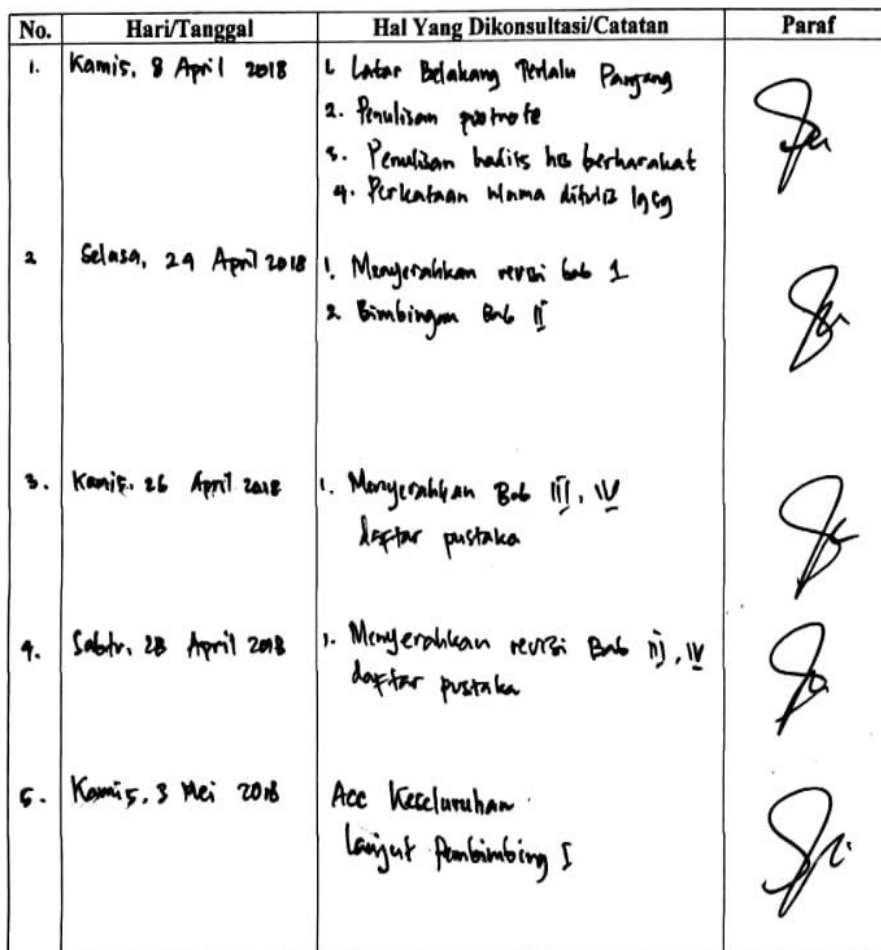 No. Hari/Tanggal Hal Yang Dikonsultasi/Catatan Paraf
1. Kamis, 8 April 2018 1. Latar Belakang Terlalu Panjang
2. Penulisan footnote
3. Penulisan hadits hrs berharakat
4. Perkataan ulama ditulis
2 Selasa, 24 April 2018 1. Menyerahkan revisi bab 1
2 Bimbingan Bab II
3. Kamis, 26 April 2018 1. Menyerahkan Bab III, IV
daftar pustaka
4. Sabtu, 28 April 2018 1. Menyerahkan revisi Bab III, IV
daftar pustaka
5. Kamis, 3 Mei 2018 Acc Keseluruhan
Lanjut Pembimbing I